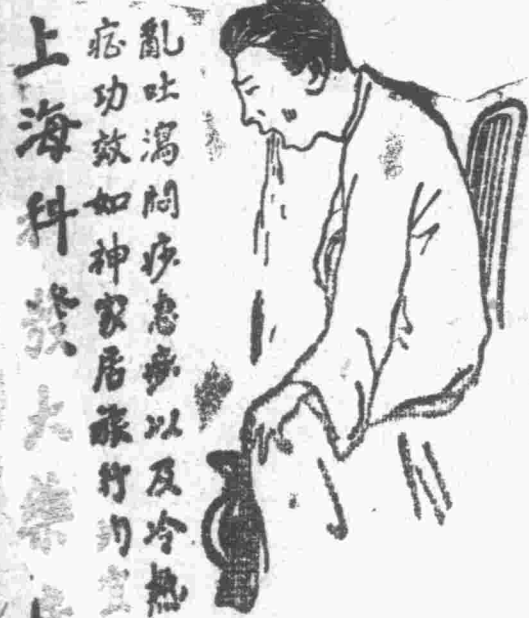 亂吐瀉悶痧惡痢以及冷熱
症功效如神家居旅行均宜
上海科發大藥